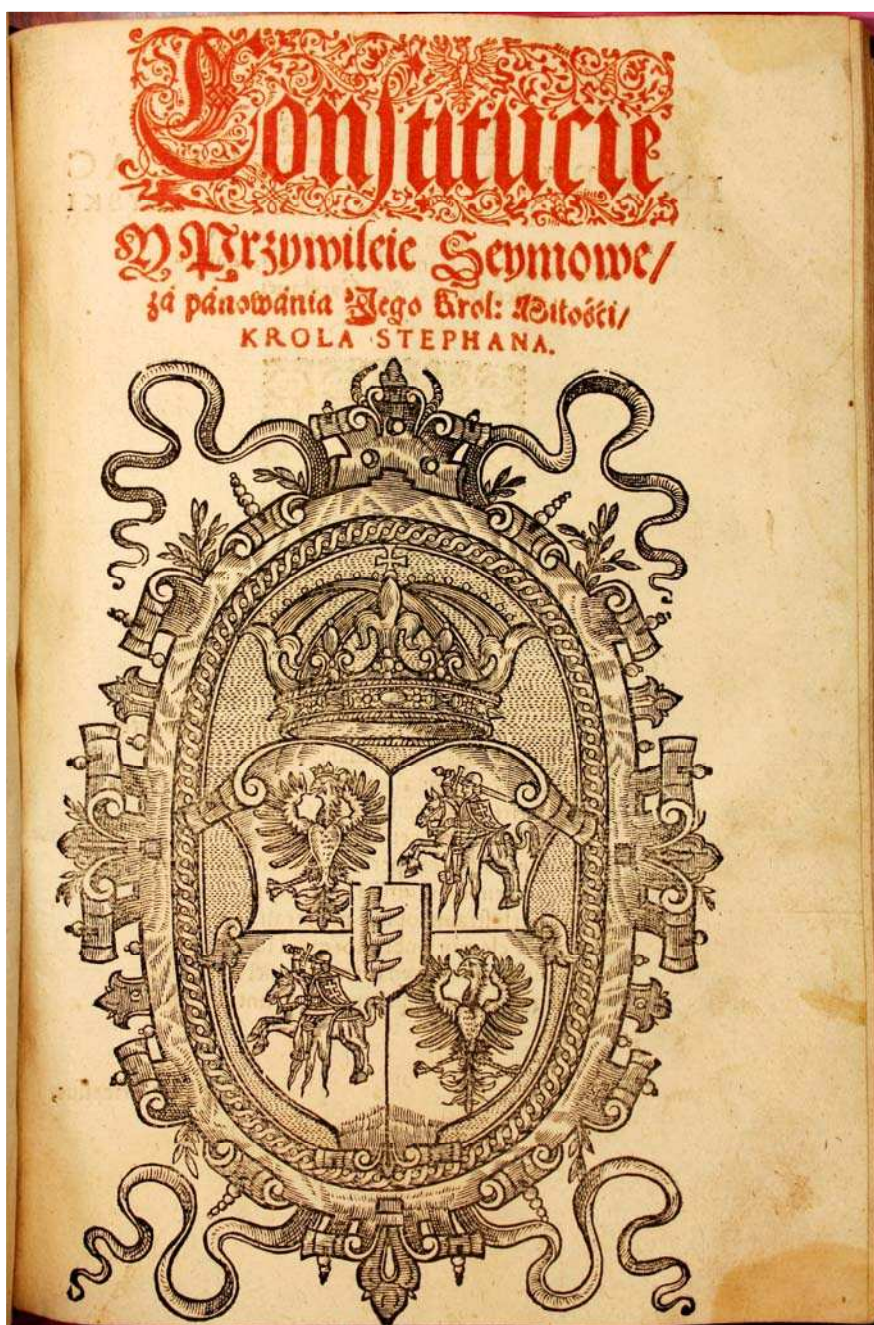 Constitucie
Y Przywileie Seymowe/
zá pánowánia Jego Krol: Miłości/
KROLA STEPHANA.